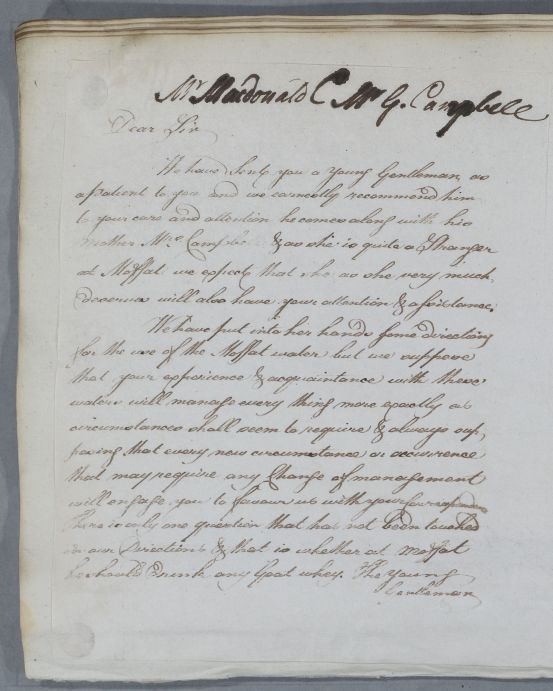 Mr. Macdonald C Mr G. Campbell
Dear Sir
We have Sent you a young Gentleman, as
a patient to you and we earnestly recommend him
to your care and attention he comes along with his
mother Mrs. Campbell & as she is quite a Stranger
at Moffat we expect that she as she very much
deserves will also have your attention & assistance.
We have put into her hands some directions
for the use of the Moffat water but we suppose
that your experience & acquaintance with these
waters will manage every thing more exactly as
circumstances shall seem to require & always sup,
posing that every new circumstance or occurrence
that may require any Change of management
will engage you to favour us with your
There is only one question that has not been touched
in our Directions & that is whether at Moffat
he should Drink any Goat whey. The Young
Gentleman